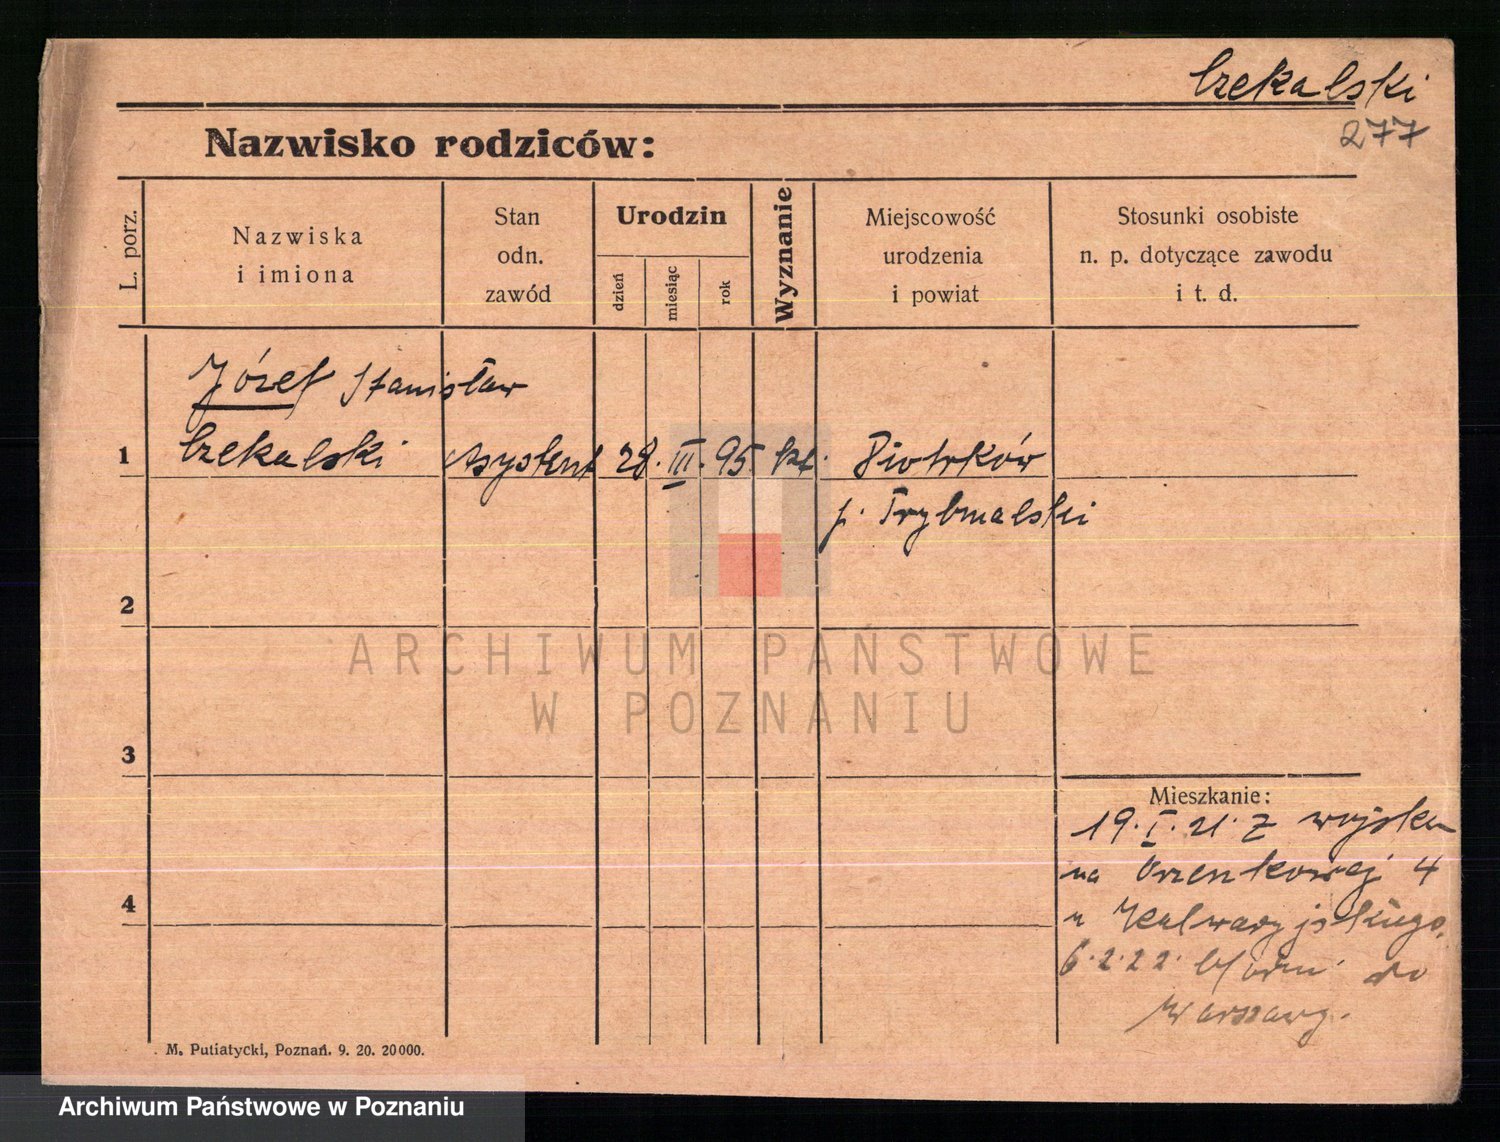 Czekalski
277
Nazwisko rodziców:
L. porz.
Nazwiska
i imiona
Stan
odn.
zawód
Urodzin
dzień
miesiąc
rok
Wyznanie
Miejscowość
urodzenia
i powiat
Stosunki osobiste
n. p. dotyczące zawodu
i t. d.
Józef Stanisław
1 Czekalski asystent 28. III. 95. kt. Piotrków
p. Trybunalski
2
ARCHIWUM PAŃSTWOWE
W POZNANIU
3
Mieszkanie:
19. I. 21. Z wojska
na 4
4
u Kalwaryjskiego.
6.2.22. do
Warszawy.
M. Putiatycki, Poznań. 9. 20. 20000.
Archiwum Państwowe w Poznaniu